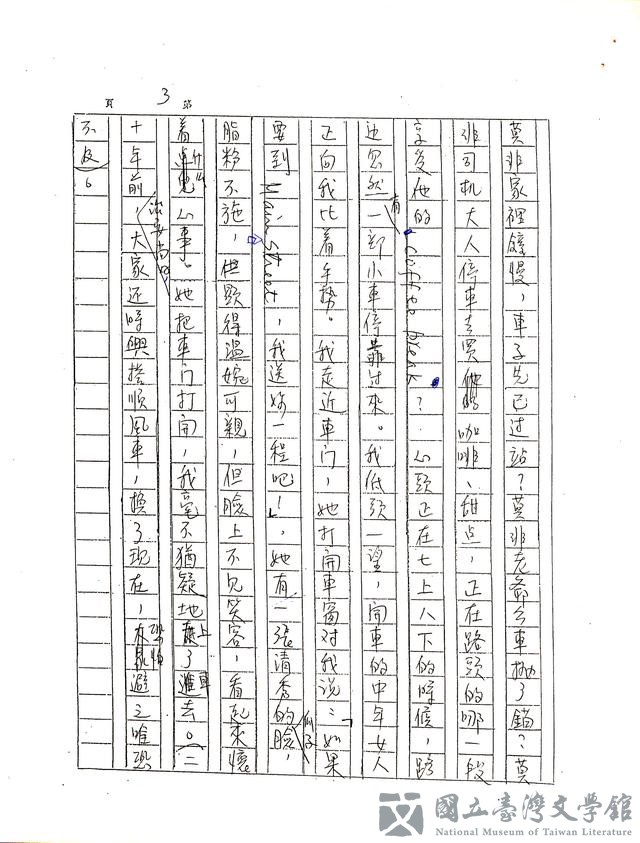 頁 3 站
莫非家裡鐘慢，車子先已过站？莫非老爺公車拋了錨？莫
非司机大人停車去買咖啡、甜点，正在路頭的哪一段
享受他的coffee break？心頭正在七上八下的時候，路
边忽然有一部小車停靠过來。我低頭一望，開車的中年女人
正向我比着手勢。我走近車门，她打開車窗对我说：「如果
要到Main Street，我送妳一程吧！」，她有一張清秀的瓜子臉，
脂粉不施，但顯得溫婉可親，但臉上不見笑容，看起來懷
着什么心事。她把車门打開，我毫不猶疑地上了車去。（二
十年前，治安尚好，大家还時興搭順風車，換了現在，恐怕避之唯恐
不及）。
國立臺灣文學館
National Museum of Taiwan Literature